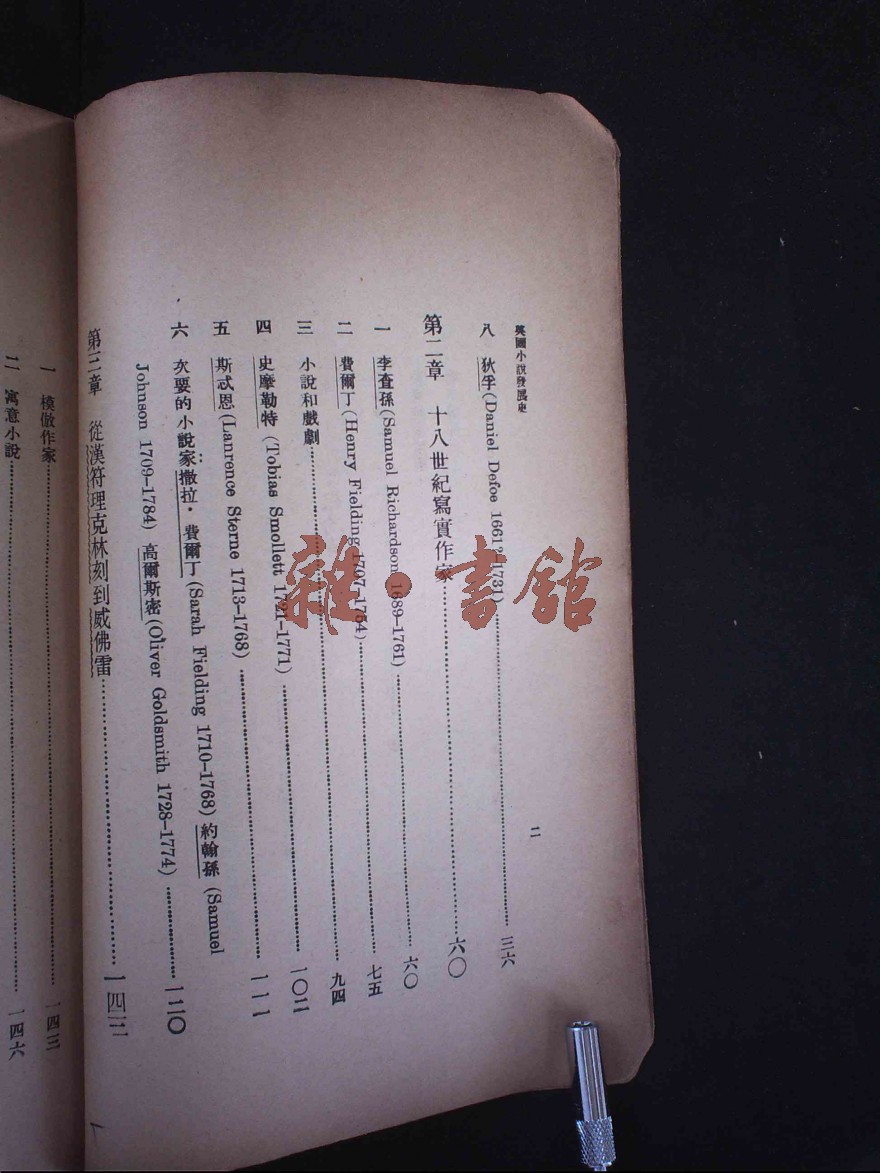 英國小說發展史
二
八 狄孚(Daniel Defoe 1661?-1731)…………三六
第二章 十八世紀寫實作家…………六〇
一 李查孫(Samuel Richardson 1689-1761)…………六〇
二 費爾丁(Henry Fielding 1707-1754)…………七五
三 小說和戲劇…………九四
四 史摩勒特(Tobias Smollett 1721-1771)…………一〇二
五 斯忒恩(Lanrence Sterne 1713-1768)…………一一一
六 次要的小說家:撒拉·費爾丁(Sarah Fielding 1710-1768)約翰孫(Samuel
Johnson 1709-1784)高爾斯密(Oliver Goldsmith 1728-1774)…………一二〇
第三章 從漢符理克林刻到威佛雷…………一四三
一 模倣作家…………一四三
二 寓意小說…………一四六
雜·書館